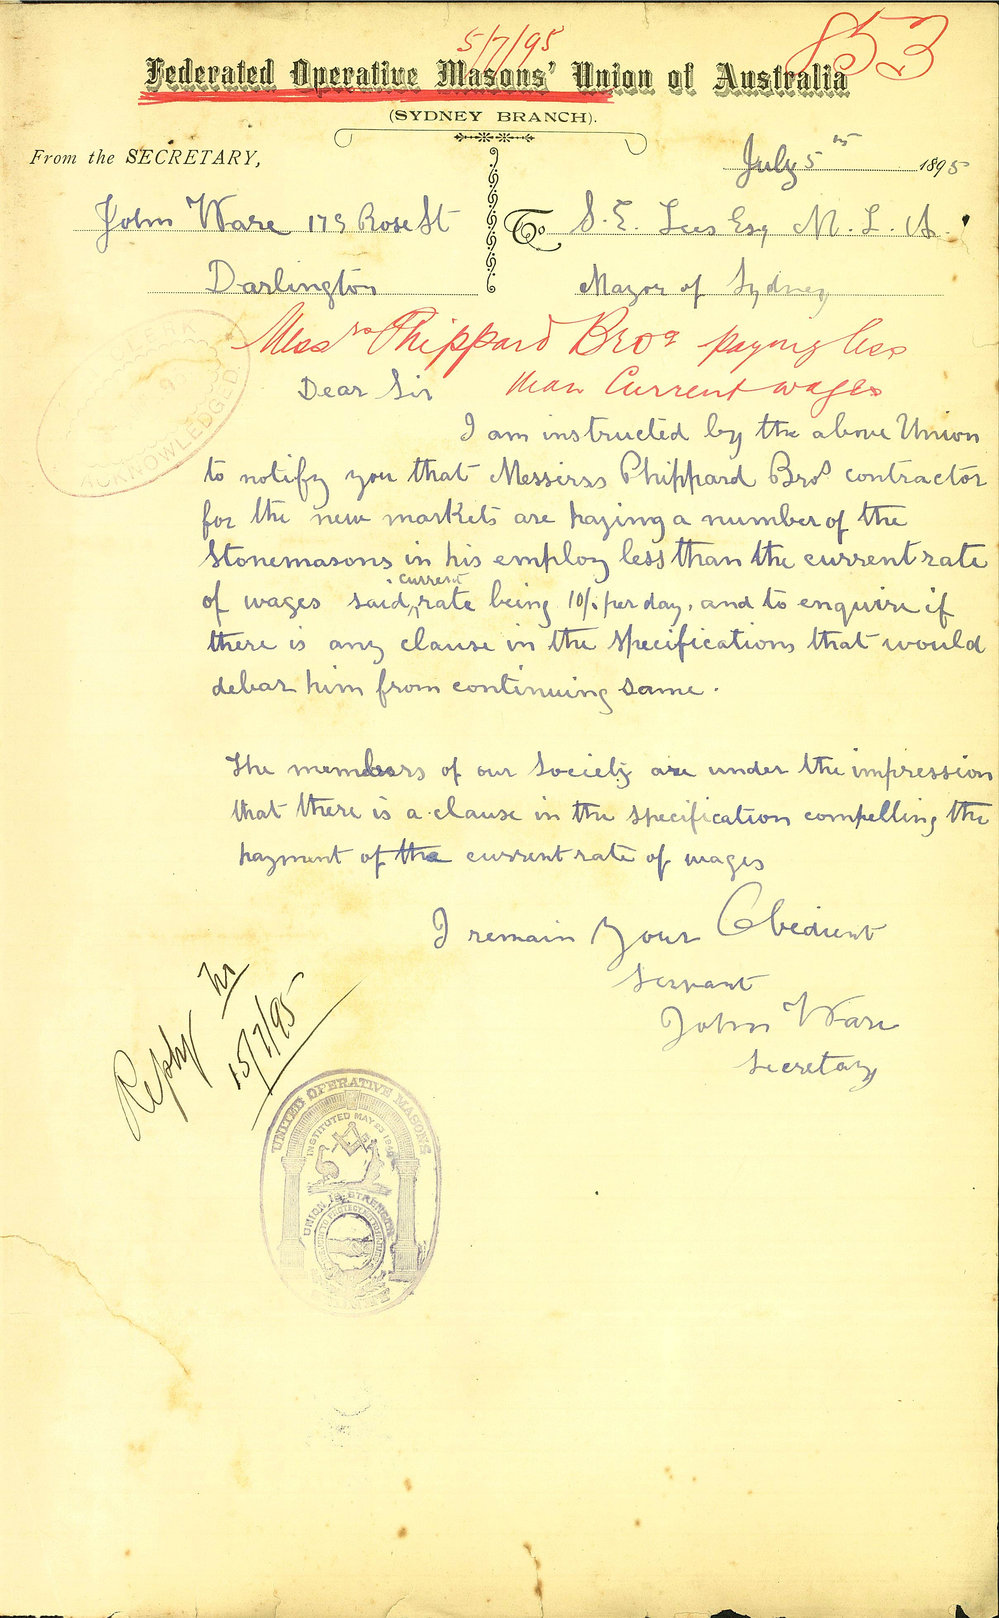 5/7/95
853
Federated Operative Masons' Union of Australia
(SYDNEY BRANCH).
From the SECRETARY,
July 5th 1895
John Ware 179 Rose St
Darlington
To S. E. Lees Esq M. L. A.
Mayor of Sydney
Messrs Phippard Bros paying less
than Current wages
ACKNOWLEDGED
Dear Sir
I am instructed by the above Union
to notify you that Messierss Phippard Bros contractor
for the new markets are paying a number of the
Stonemasons in his employ less than the current rate
of wages said current rate being 10/. per day, and to enquire if
there is any clause in the specifications that would
debar him from continuing same.
The members of our Society are under the impression
that there is a clause in the specification compelling the
payment of the current rate of wages
I remain your Obedient
Servant
John Ware
Secretary
Reply
15/7/95
UNITED OPERATIVE MASON'S
INSTITUTED MAY 23
UNION IS STRENGTH